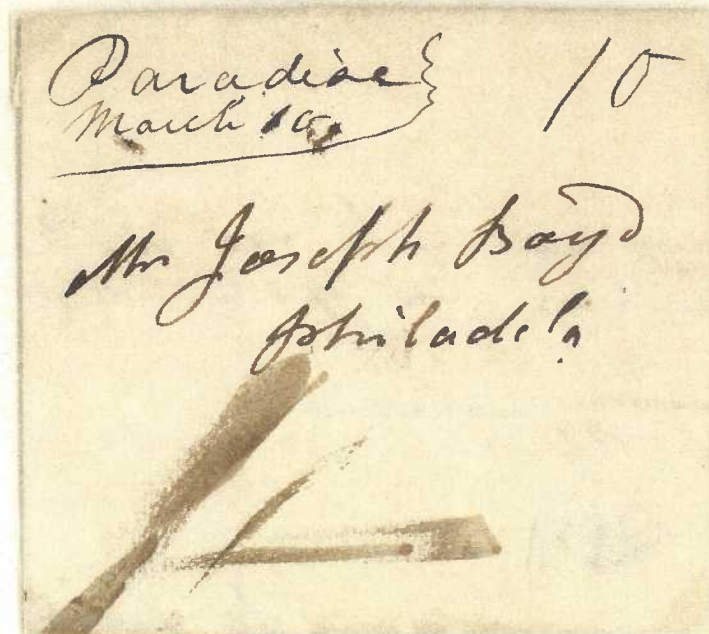 Paradise 10
March 10
Mr Joseph Boyd
Philadela